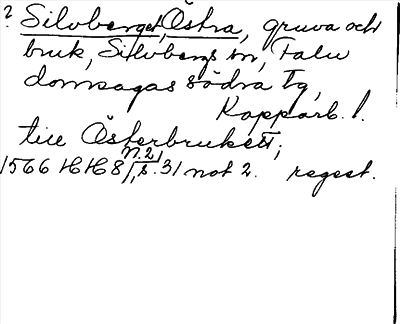 ? Silvberget, Östra, gruva och
bruk, Silvbergs sn, Falu
domsagas södra tg,
Kopparb. l.
till Österbruket;
1566 HH 8/1, n. 21, s. 31 not 2. regest.